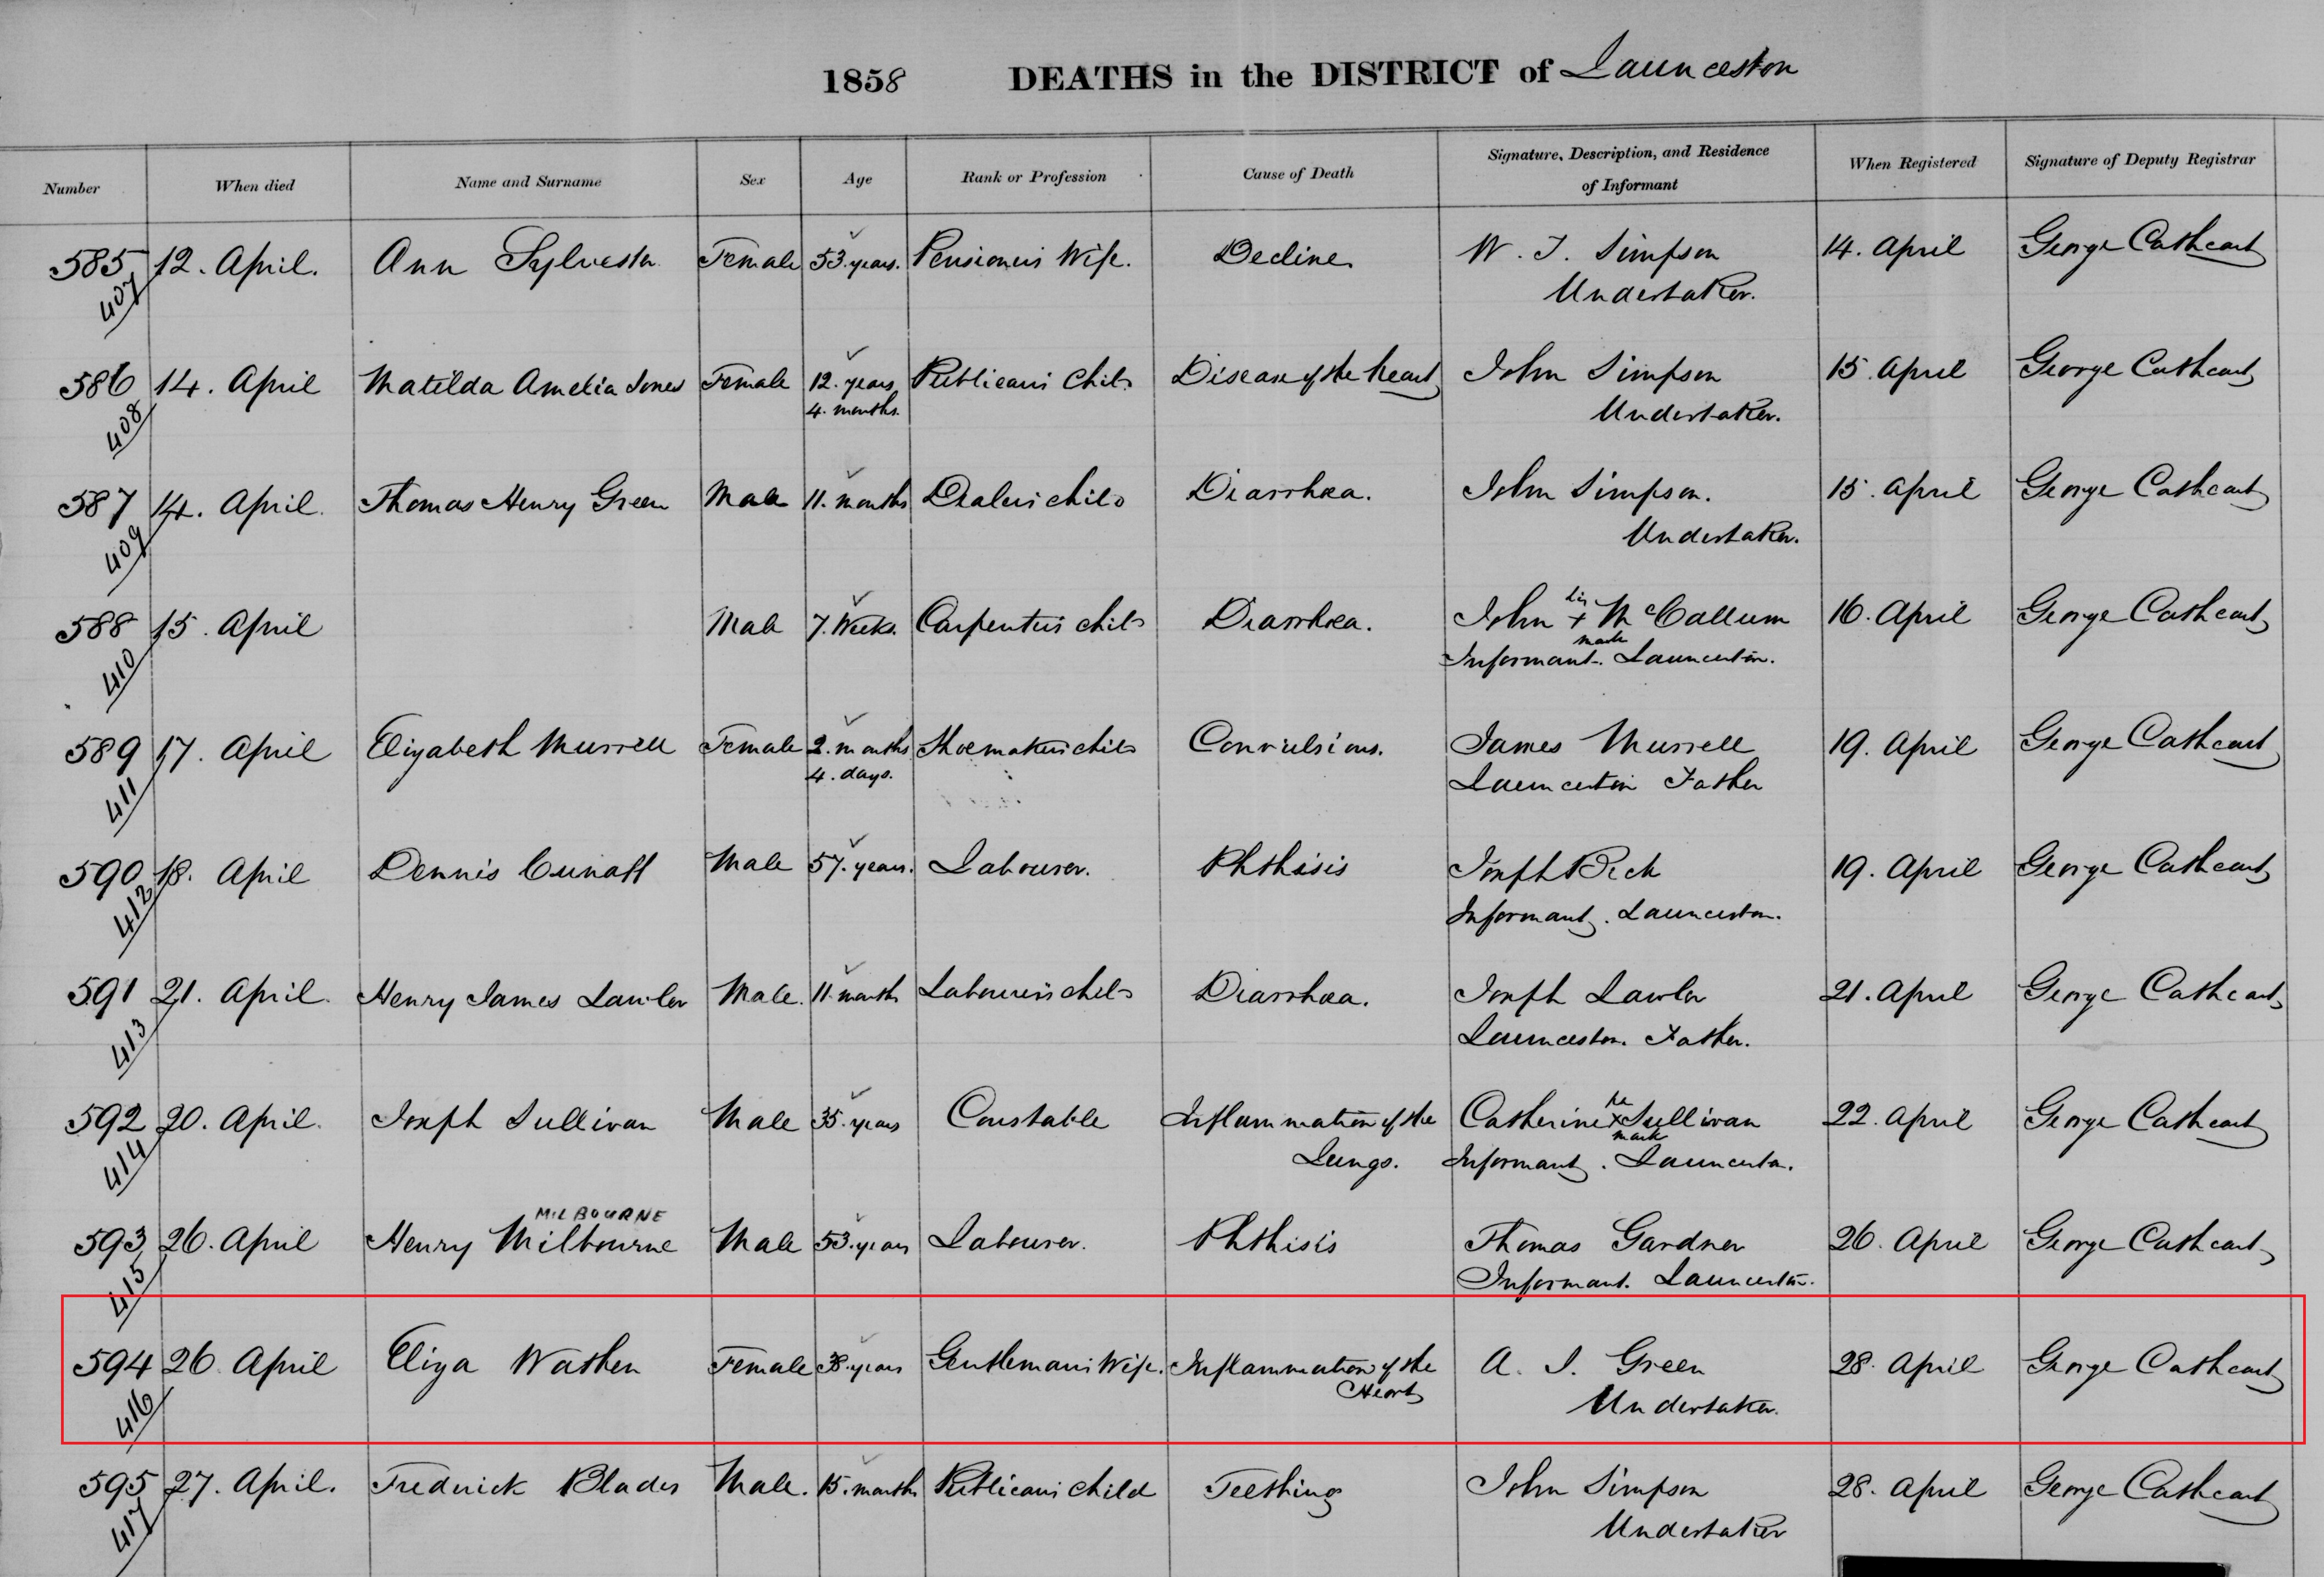 1858 DEATHS in the DISTRICT of Launceston
Number When died Name and Surname Sex Age Rank or Profession Cause of Death Signature, Description, and Residence of Informant When Registered Signature of Deputy Registrar
585 12. April. Ann Sylvester Female 53. years. Pensioner's Wife. Decline W. T. Simpson 14. April George Cathcart
407 Undertaker.
586 14. April Matilda Amelia Jones Female 12. years Publican's Child Disease of the heart John Simpson 15. April George Cathcart
408 4. months. Undertaker.
587 14. April. Thomas Henry Green Male 11. months Dealer's child Diarrhœa. John Simpson. 15. April George Cathcart
409 Undertaker.
588 15. April Male 7. Weeks. Carpenter's child Diarrhœa. John his + mark McCallum 16. April George Cathcart
410 Informant. Launceston.
589 17. April Elizabeth Murrell Female 2. months Shoemaker's child Convulsions. James Murrell 19. April George Cathcart
411 4. days. Launceston Father
590 18. April Dennis Male 57. years. Labourer. Phthisis Joseph 19. April George Cathcart
412 Informant. Launceston.
591 21. April. Henry James Lawler Male. 11. months Labourer's child Diarrhœa. Joseph Lawler 21. April George Cathcart
413 Launceston. Father.
592 20. April. Joseph Sullivan Male 35. years Constable Inflammation of the Catherine her x mark Sullivan 22. April George Cathcart
414 Lungs. Informant. Launceston.
MILBOURNE
593 26. April Henry Milbourne Male 53. years Labourer. Phthisis Thomas Gardner 26. April George Cathcart
415 Informant. Launceston.
594 26. April Eliza Wathen Female 38. years Gentleman's Wife. Inflammation of the A. J. Green 28. April George Cathcart
416 Heart Undertaker.
595 27. April. Frederick Blades Male. 15. months Publican's child Teething John Simpson 28. April George Cathcart
417 Undertaker